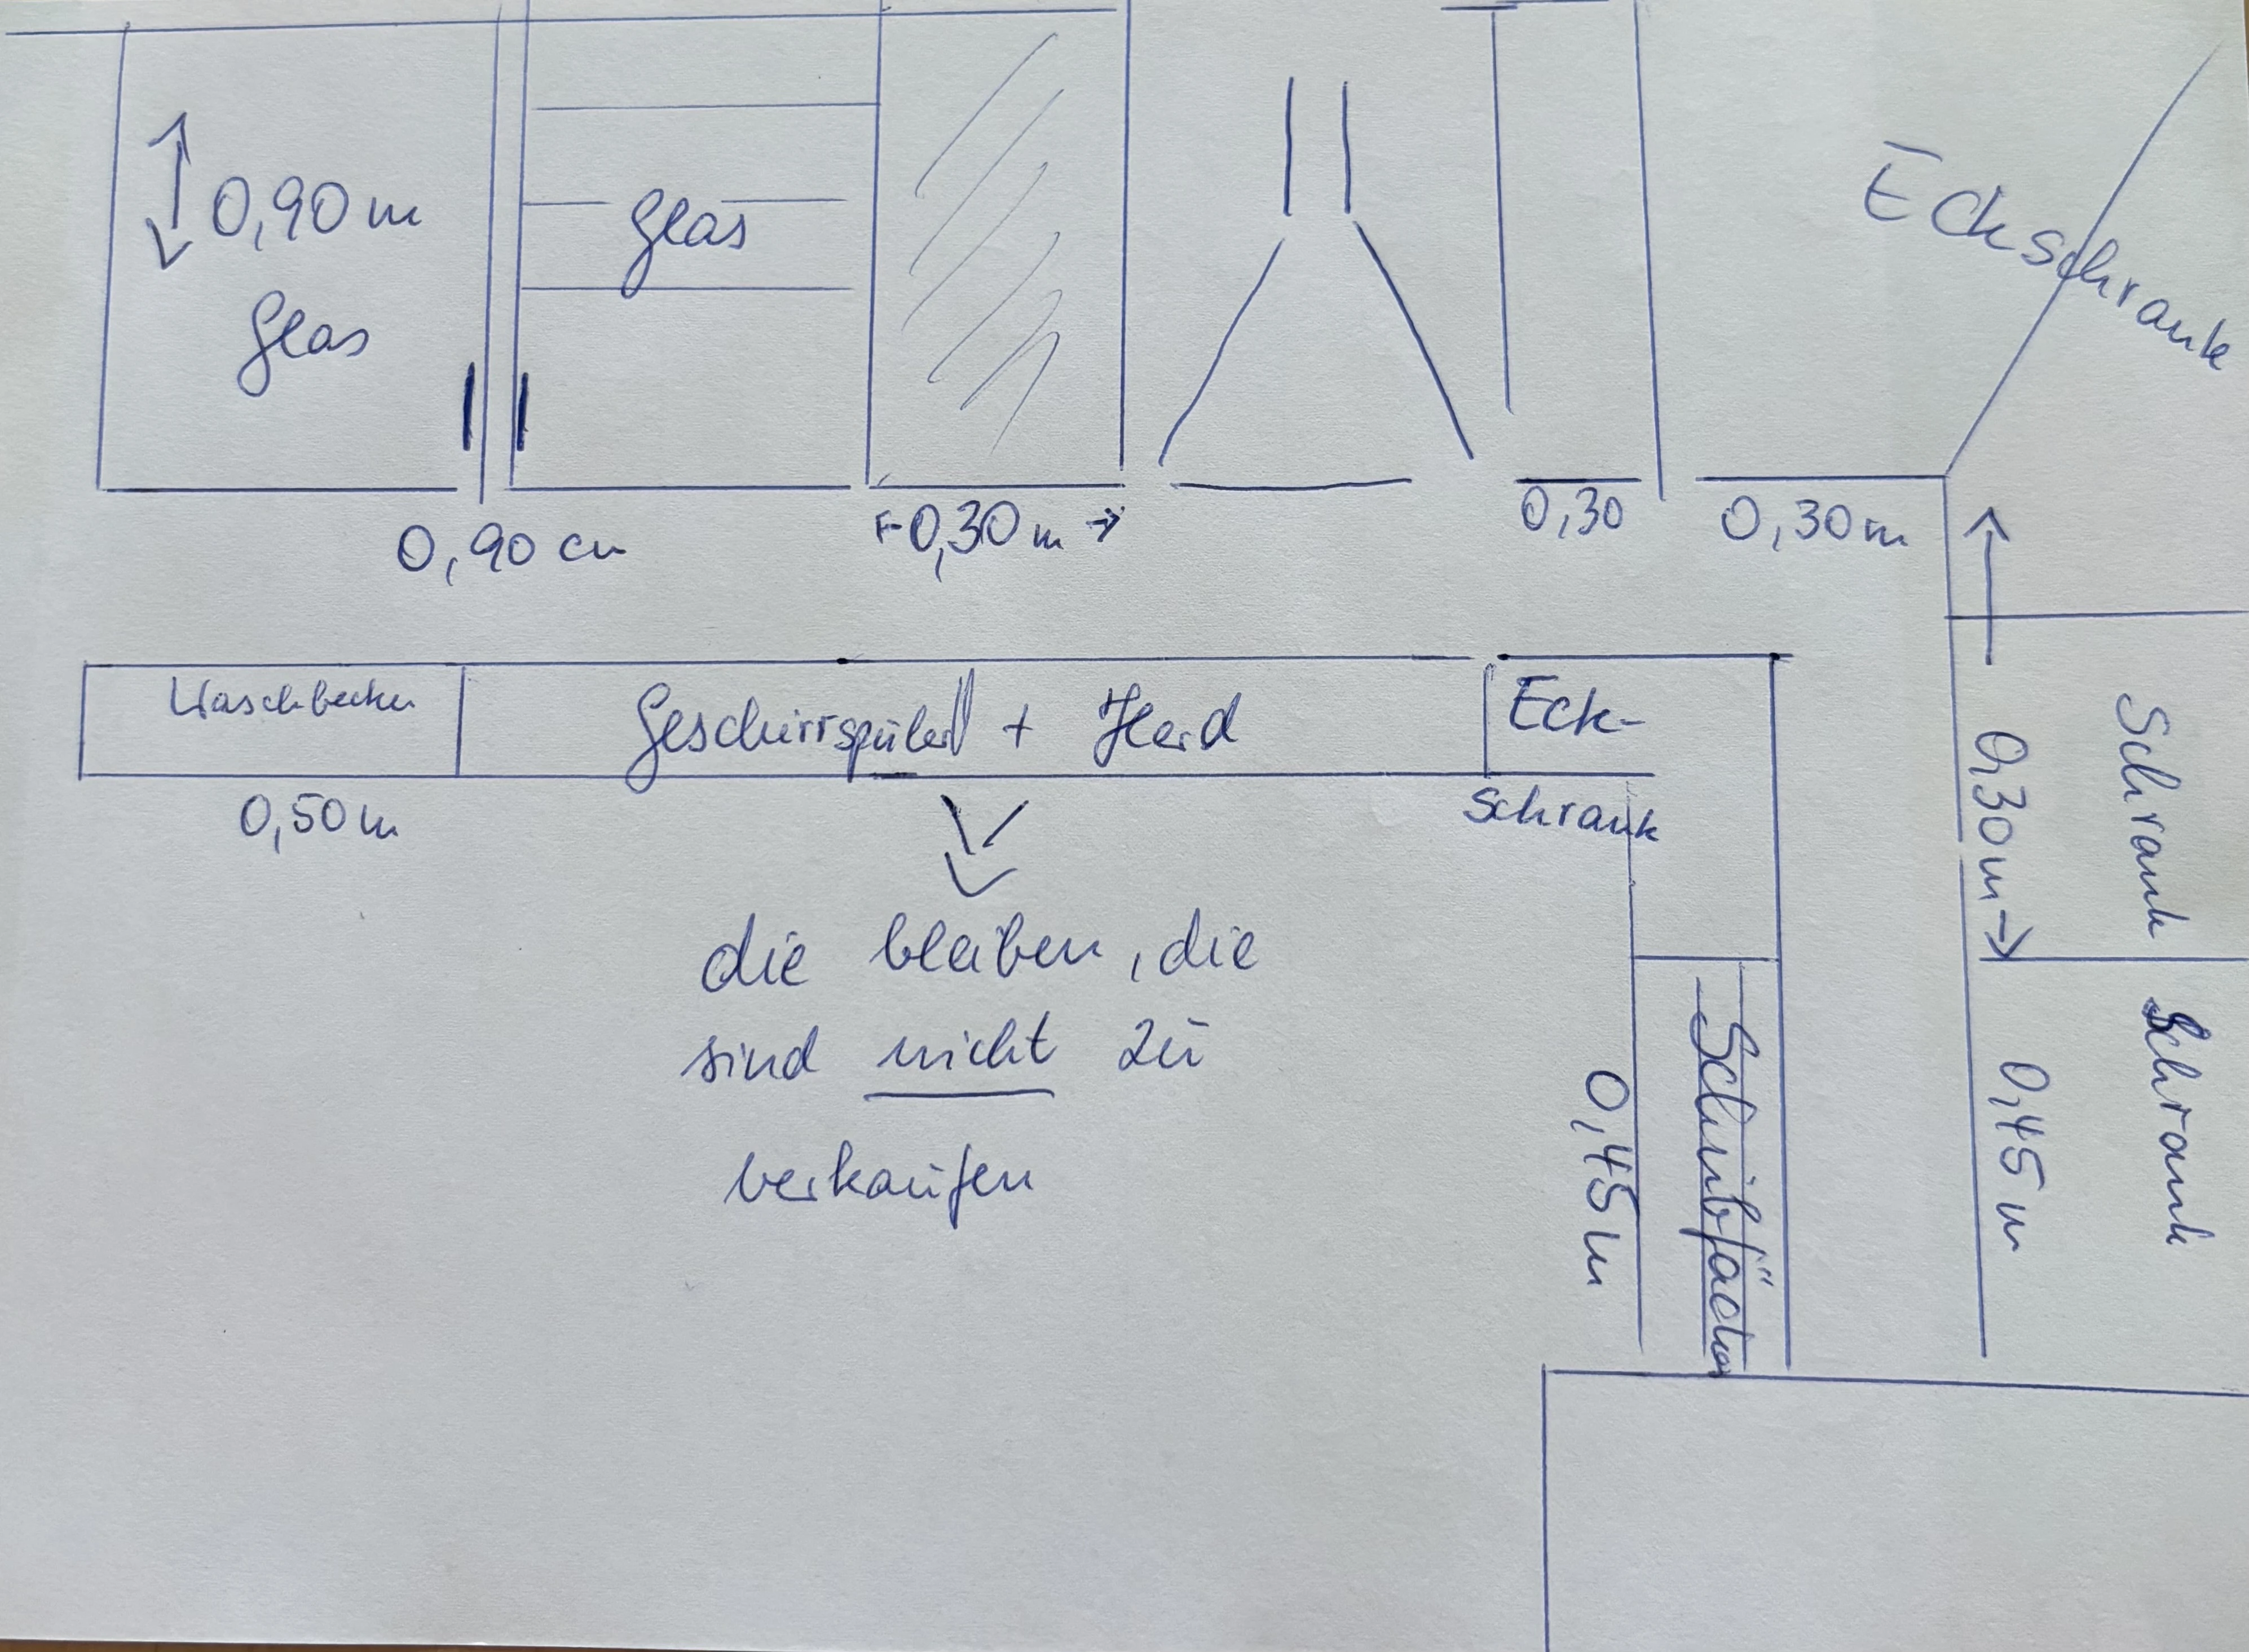 0,90 m
Glas
Glas
Eckschrank
0,90 cm
0,30 m
0,30
0,30 m
Waschbecken
Geschirrspüler + Herd
Eck-
Schrank
0,50 m
0,30 m
Schrank
die bleiben, die
sind nicht zu
verkaufen
0,45 m
Schubfächer
0,45 m
Schrank